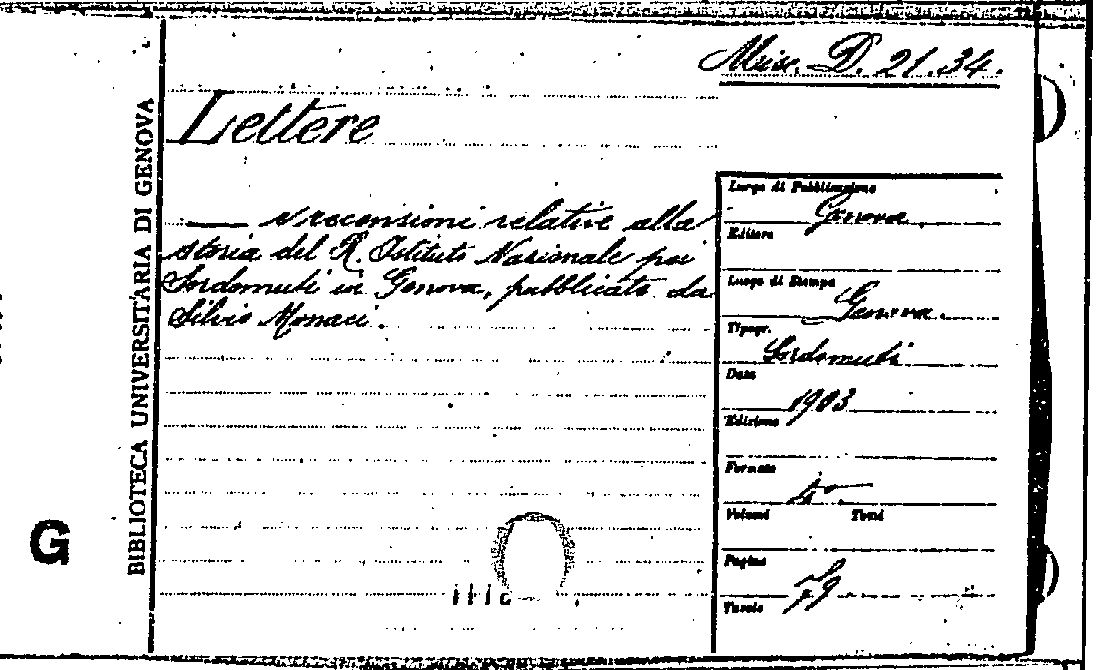 Misc. D. 21.34.
Lettere
— e recensioni relative alla
storia del R. Istituto Nazionale pei
Sordomuti in Genova, pubblicate da
Silvio Monaci.
Luogo di Pubblicazione
Genova
Editore
Luogo di Stampa
Genova.
Tipogr.
Sordomuti
Data
1903
Edizione
Formato
4°
Volumi Tomi
Pagine
79
Tavole
BIBLIOTECA UNIVERSITARIA DI GENOVA
G